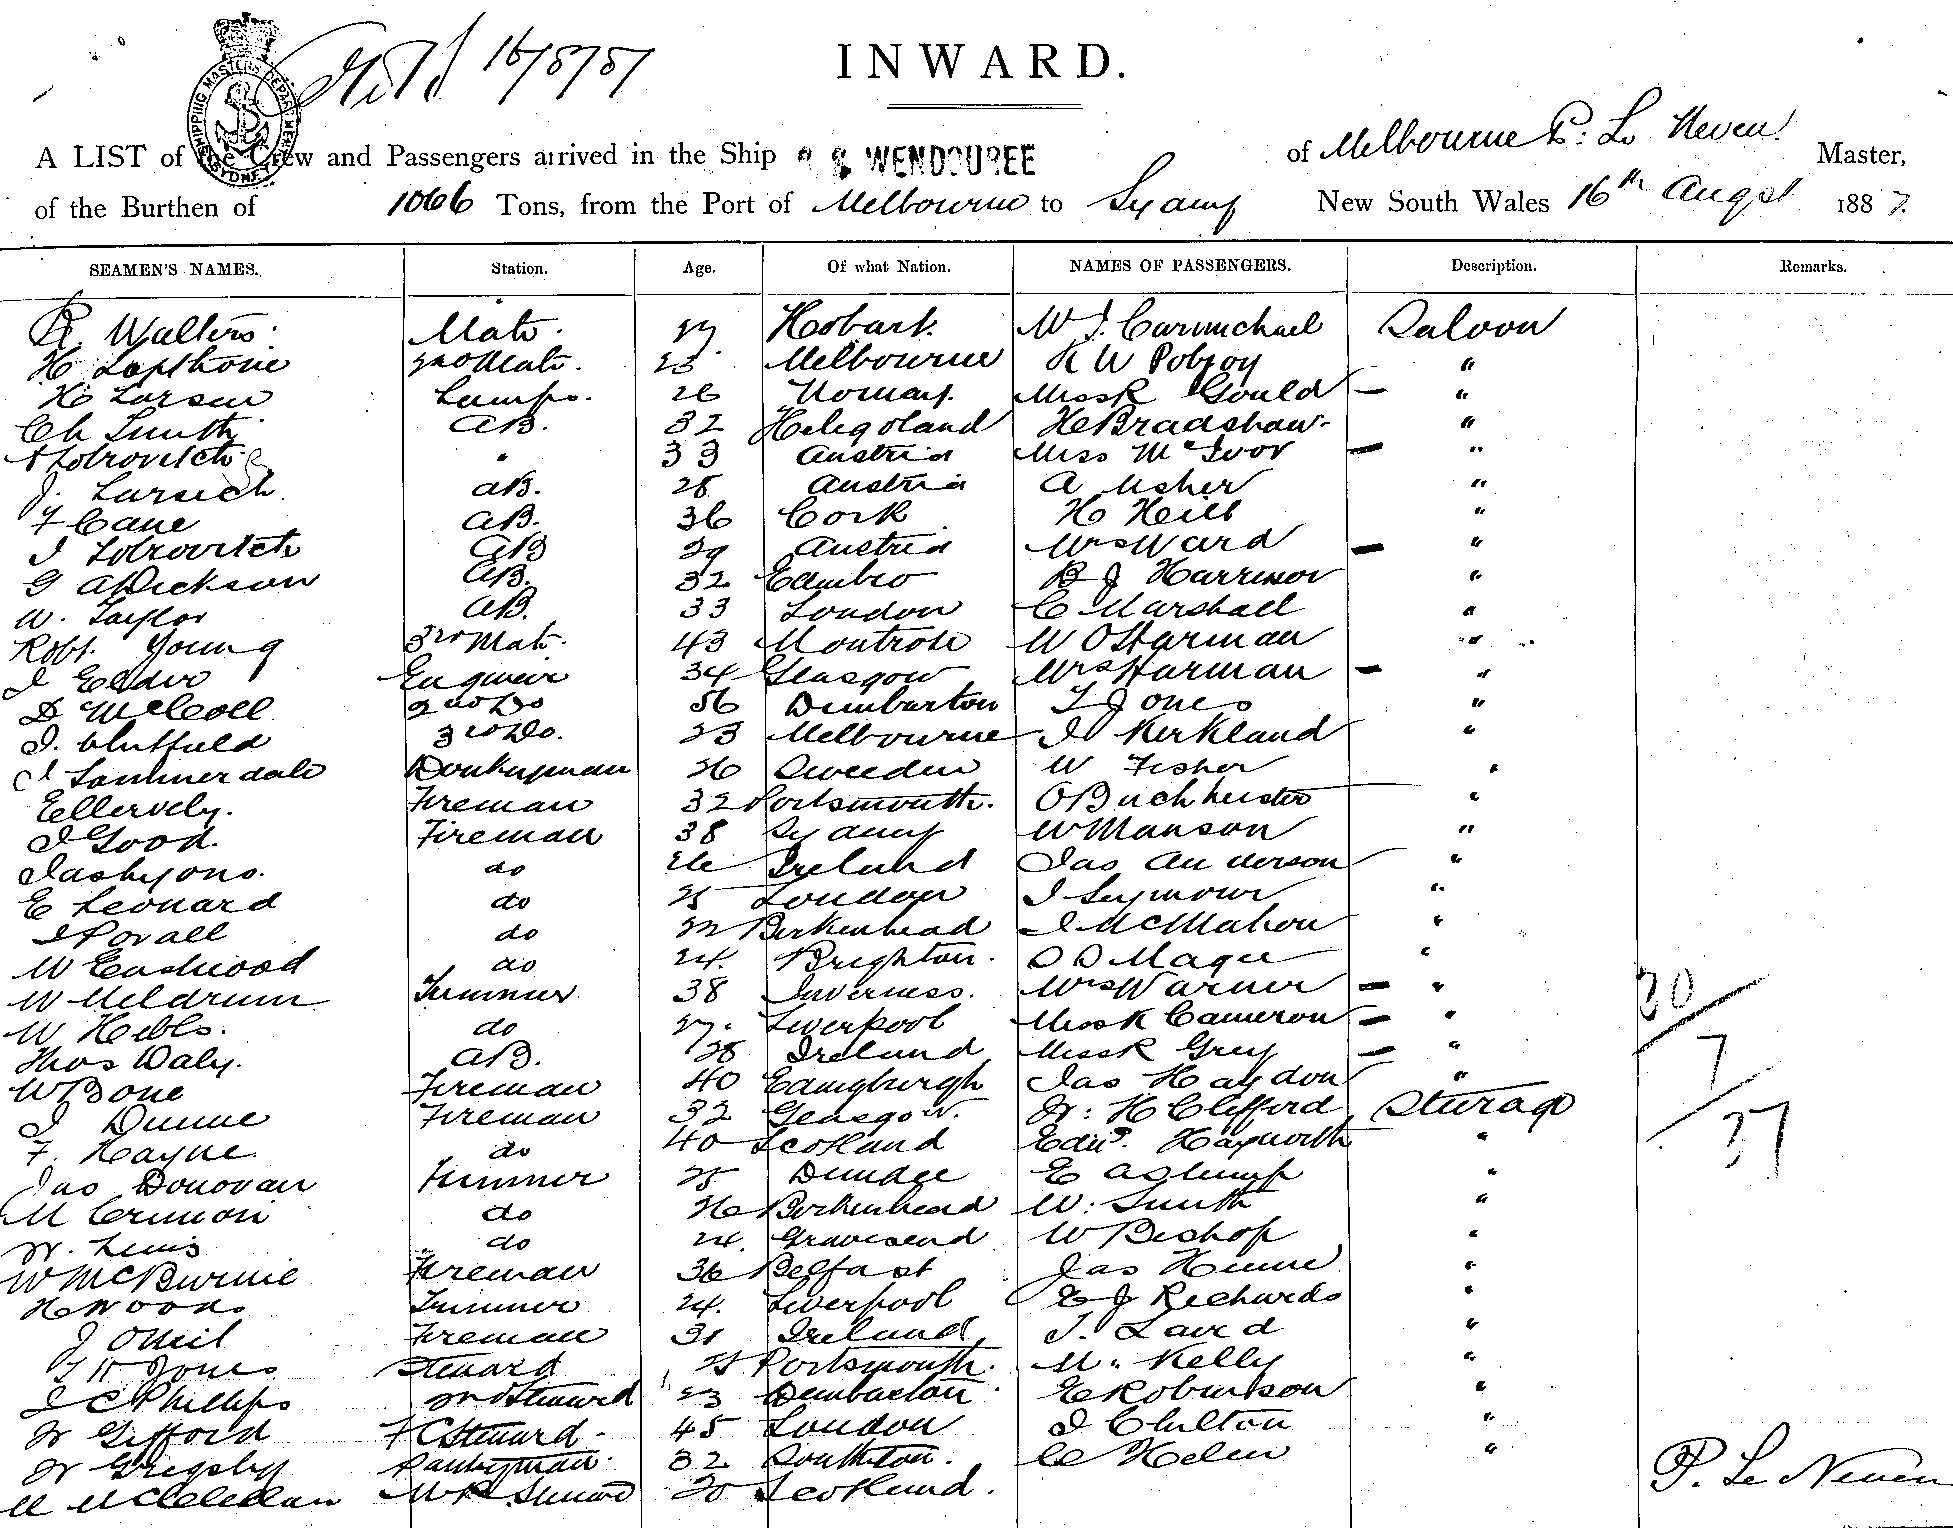 16/8/87
INWARD.
SHIPPING MASTERS DEPARTMENT SYDNEY
A LIST of the Crew and Passengers arrived in the Ship S WENDOUREE of Melbourne P. Le Neven Master,
of the Burthen of 1066 Tons, from the Port of Melbourne to Sydney New South Wales 16th Augst 1887.
SEAMEN'S NAMES. Station. Age. Of what Nation. NAMES OF PASSENGERS. Description. Remarks.
R. Walters Mate 27 Hobart. W J. Carmichael Saloon
H Lapthone 2nd Mate. 23 Melbourne R W Pobjoy "
H Larsen Lamps. 26 Norway. Miss R Gould — "
Ch Smith AB. 32 Helegoland H Bradshaw "
" 33 Austria Miss McIvor — "
J. Larsich AB. 28 Austria A Usher "
F Cane AB. 36 Cork H Heil "
J AB 29 Austria Mrs Ward — "
G A Dickson AB. 32 Edinbro B J Harrison "
W. Taylor AB. 33 London C Marshall "
Robt. Young 3rd Mate. 43 Montrose W O Harman "
J Elder Engineer 34 Glasgow Mrs Harman — "
D McColl 2nd Do 56 Dumbarton T Jones "
J. Whitfield 3rd Do. 23 Melbourne J Kerkland "
J Donkeyman 26 Sweeden W Fisher "
E Fireman 32 Portsmouth. O "
J Good. Fireman 38 Sydney W Manson "
Jas Lyons. do 26 Ireland Jas Anderson "
E Leonard do 25 London J Seymour "
J Povall do 22 Birkenhead J McMahon "
W Eastwood do 24. Brighton. D D Magee "
W Meldrum Trimmer 38 Inverness. Mrs Warner — "
W Hebbs. do 27. Liverpool Miss K Cameron — "
Thos Daly. AB. 28 Ireland Miss R Grey — "
W Bone Fireman 40 Edingburgh Jas Haydon "
J Dunne Fireman 32 Glasgow. W. H Clifford Sturage
F. Hayne do 40 Scotland Edwd. Hayworth "
Jas Donovan Trimmer 25 Dundee E "
M Crimmon do 26 Birkenhead W. Smith "
W. Lewis do 24. Gravesend W Bishop "
W McBurnie Fireman 36 Belfast Jas Hume "
H Woods Trimmer 24. Liverpool E J Richards "
J ONeil Fireman 31 Ireland J. Laird "
T H Jones Steward 25 Portsmouth. M. Kelly "
J C Phillips 2nd Steward 23 Dumbarton E Robinson "
W Gifford F C Steward 45 London J Chilton "
W Grigsby Pantryman 32 Southton. C Helen "
M McClellan 20 Scotland.
30
7
37
P. Le Neven